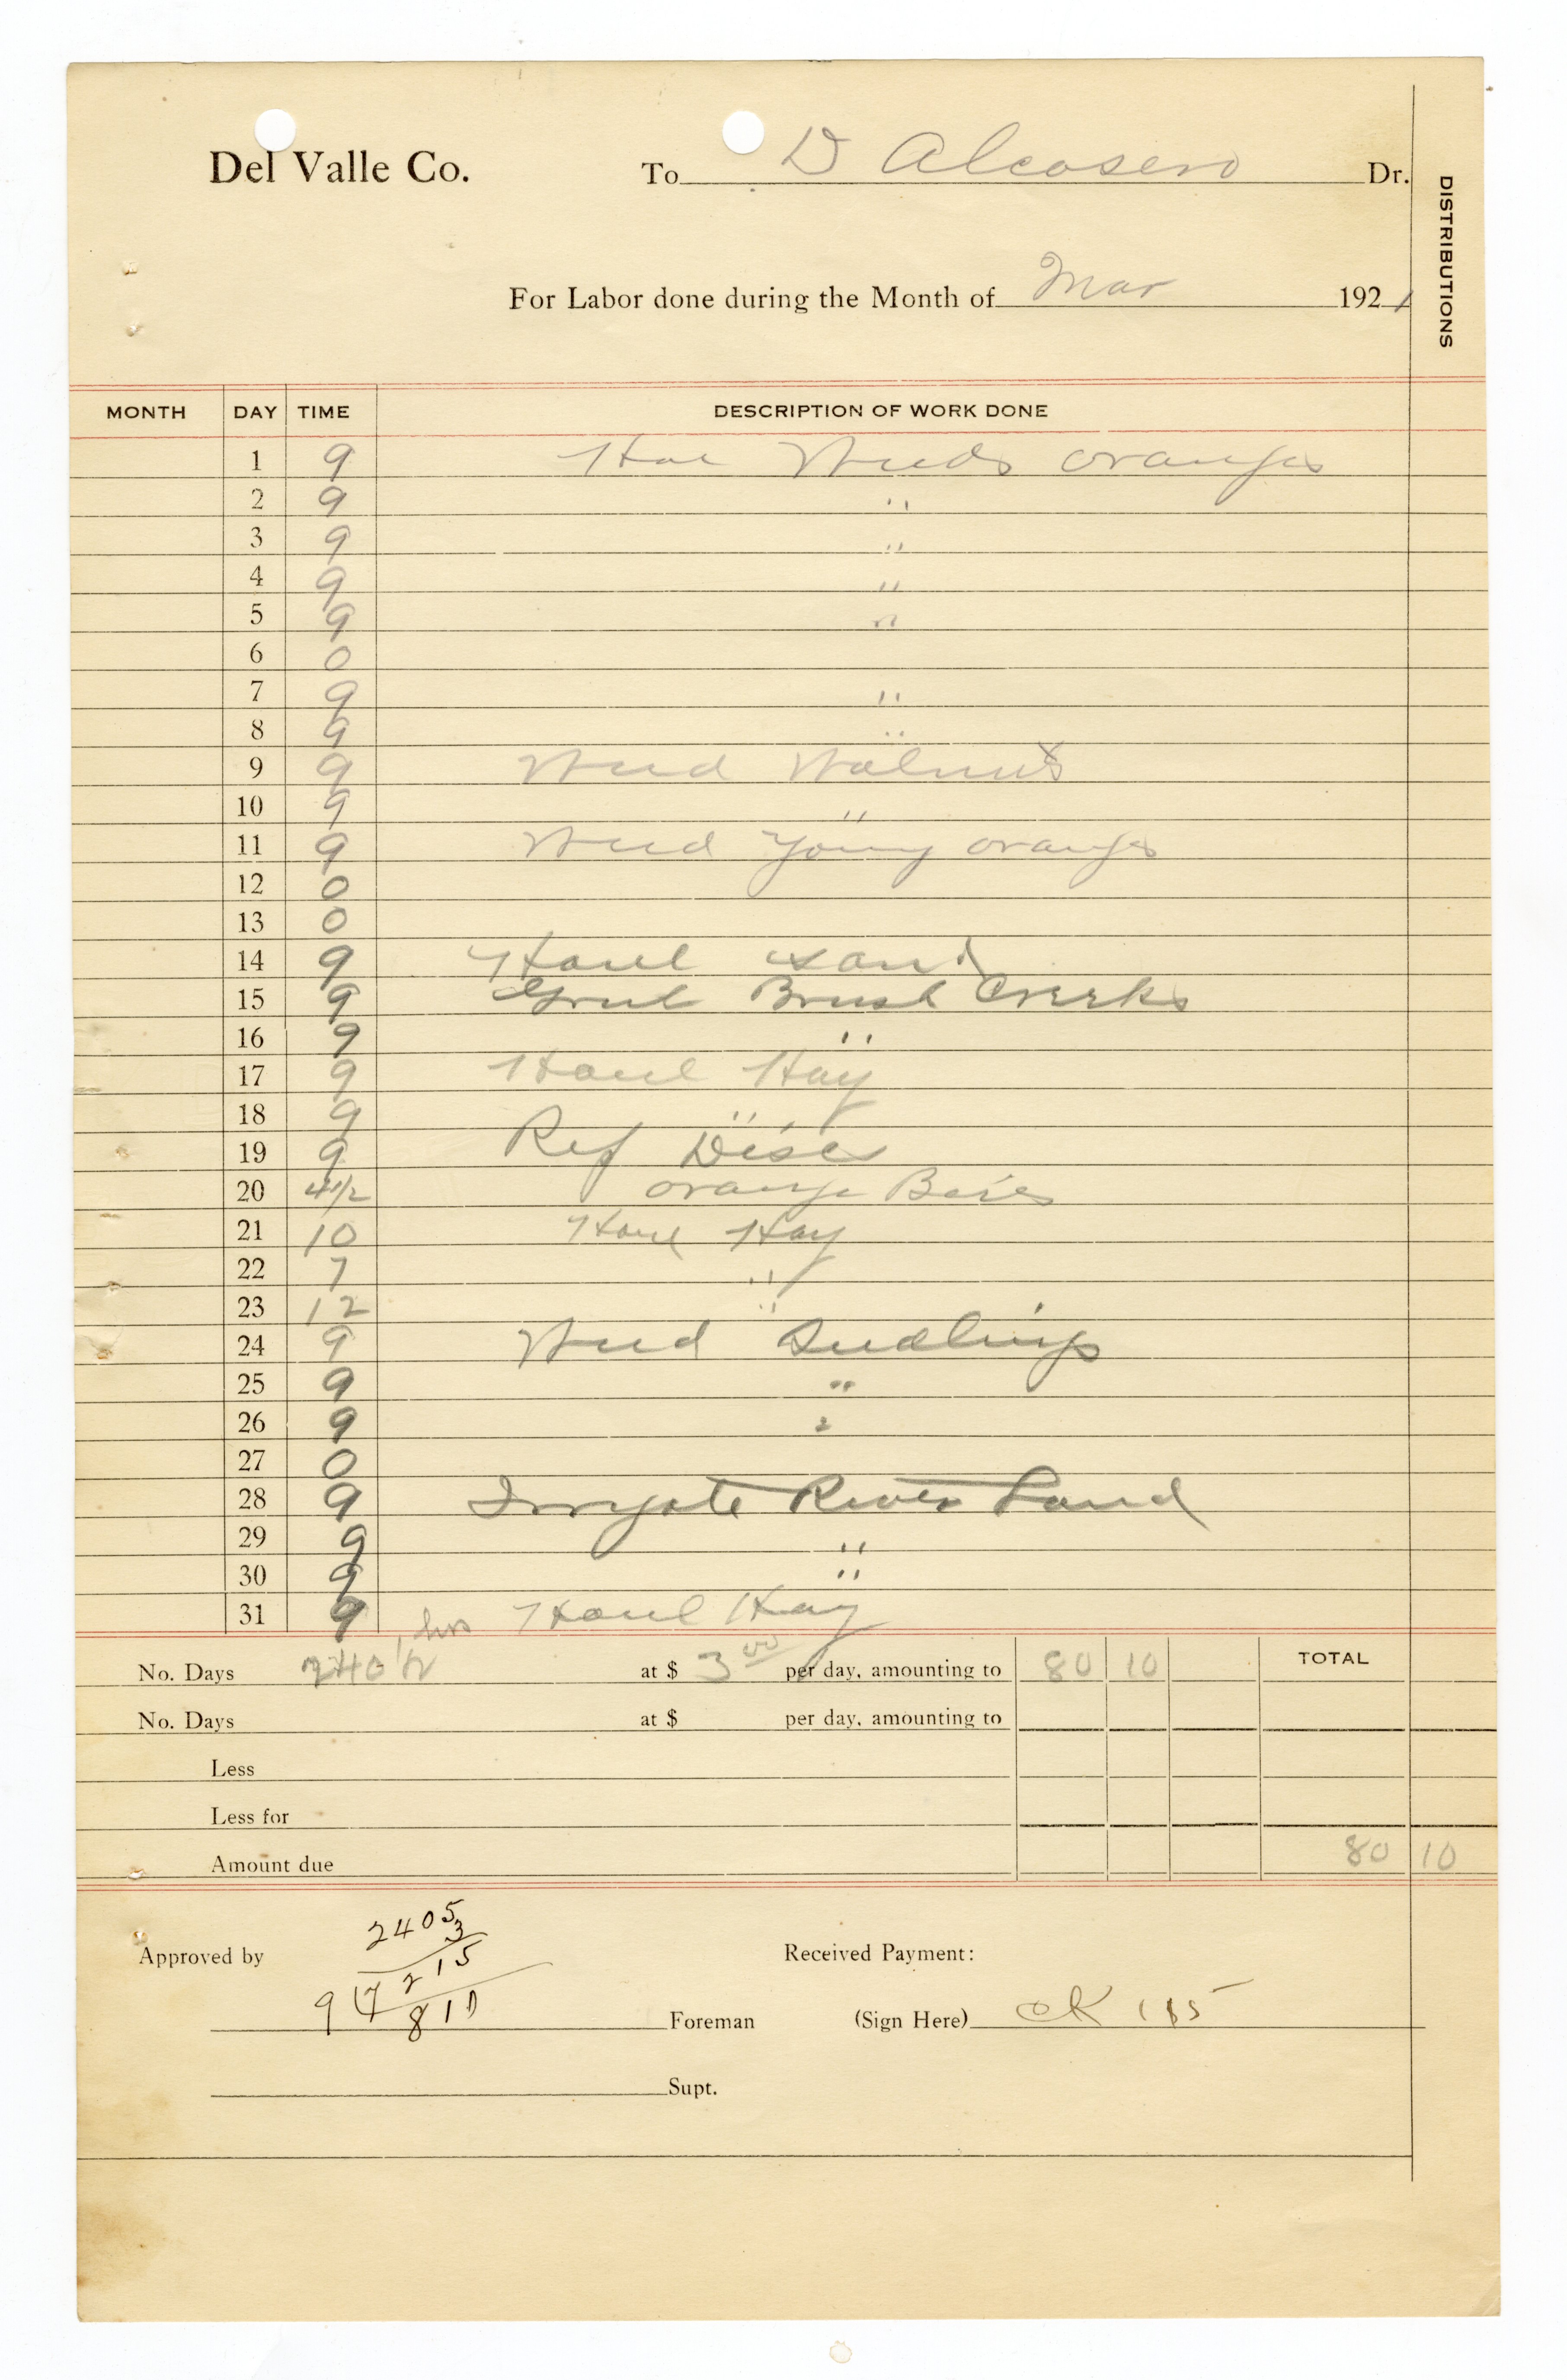 Del Valle Co. To D Alcosero Dr.
DISTRIBUTIONS
For Labor done during the Month of Mar 1921
MONTH DAY TIME DESCRIPTION OF WORK DONE
1 9 Hoe Weeds oranges
2 9 "
3 9 "
4 9 "
5 9 "
6 0
7 9 "
8 9 "
9 9 Weed Walnuts
10 9 "
11 9 Weed young oranges
12 0
13 0
14 9 Haul sand
15 9 Grub Brush Creeks
16 9 "
17 9 Haul Hay
18 9 "
19 9 Rep Discs
20 4 1/2 orange
21 10 Haul Hay
22 7 "
23 12 "
24 9 Weed Seedlings
25 9 "
26 9 "
27 0
28 9 Irrygate River Land
29 9 "
30 9 "
31 9 Haul Hay
No. Days 240 1/2 hrs at $ 3 00 per day, amounting to 80 10 TOTAL
No. Days at $ per day, amounting to
Less
Less for
Amount due 80 10
2405
3
Approved by 7215 Received Payment:
9
810 Foreman (Sign Here) OK 185
Supt.